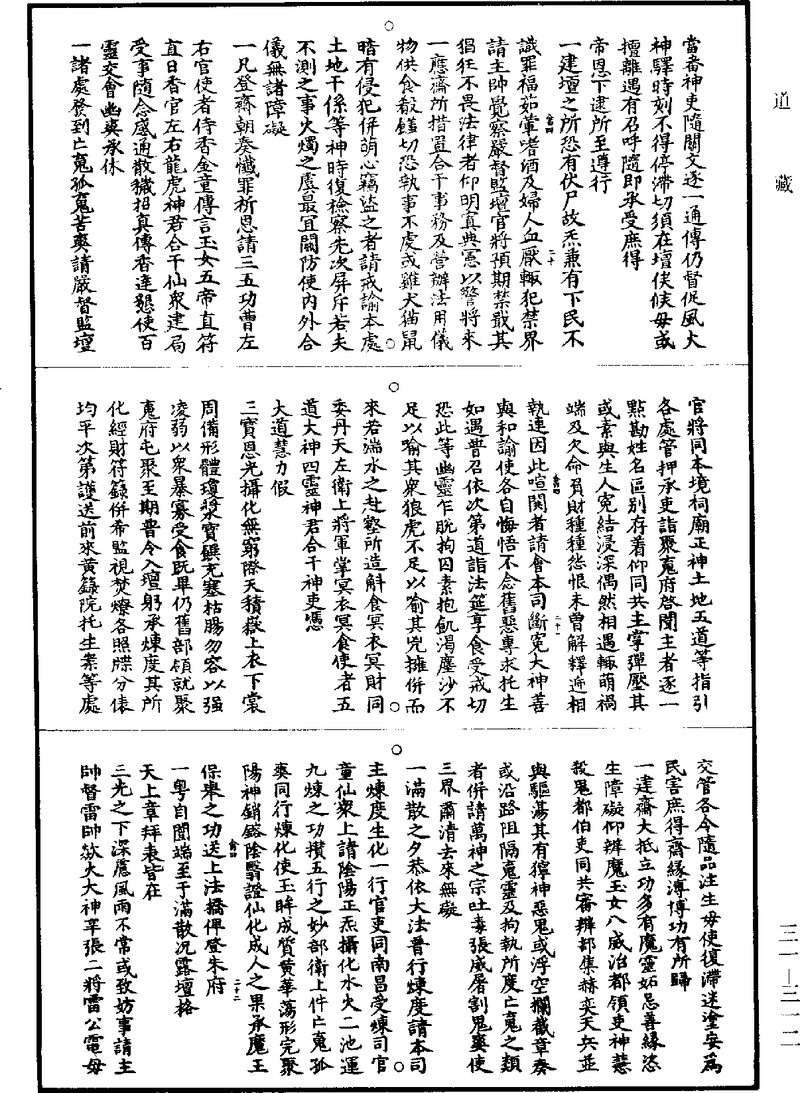 道藏
當番神吏隨關文逐一通傳仍督促風火
神驛時刻不得停滯切須在壇俟候毋或
擅離遇有召呼隨即承受庶得
帝恩下逮所至遵行
一建壇之所恐有伏尸故炁兼有下民不
識罪福茹葷嗜酒及婦人血厭輒犯禁界
請主帥覺察嚴督監壇官將預期禁戢其
猖狂不畏法律者仰明寘典憲以警將來
一應齋所措置合干事務及營辦法用儀
物供食殽饈切恐執事不虔或雞犬猫鼠
暗有侵犯併萌心竊盜之者請戒諭本處
土地干係等神時復檢察先次屏斥若夫
不測之事火燭之虞最宜關防使內外合
儀無諸障礙
一凡登齋朝奏懺罪祈恩請三五功曹左
右官使者侍香金童傳言玉女五帝直符
直日香官左右龍虎神君合干仙衆建局
受事隨念感通散穢招真傳香達懇使百
靈交會幽爽承休
一諸處發到亡䰟孤䰟苦爽請嚴督監壇
官將同本境祠廟正神土地五道等指引
各處管押承吏詣聚䰟府啓聞主者逐一
點勘姓名區別存着仰同共主掌彈壓其
或素與生人寃結浸深偶然相遇輒萌禍
端及欠命負財種種怨恨未曾解釋近相
執連因此喧鬨者請會本司斷寃大神善
與和諭使各自悔悟不念舊惡專求托生
如遇普召依次第道詣法筵享食受戒切
恐此等幽靈乍脫拘囚素抱飢渴塵沙不
足以喻其衆狼虎不足以喻其兇擁併而
來若湍水之赴壑所造斛食冥衣冥財同
委丹天左衛上將軍掌冥衣冥食使者五
道大神四靈神君合干神吏憑
大道慧力假
三寶恩光攝化無窮際天積嶽上衣下裳
周備形體瓊漿寶饌充塞枯腸勿容以强
凌弱以衆暴寡受食既畢仍舊部領就聚
䰟府屯聚至期普令入壇躬承煉度其所
化經財符籙併希監視焚燎各照牒分俵
均平次第護送前來黃籙院托生案等處
交管各令隨品注生毋使復滯迷塗妄爲
民害庶得齋緣溥博功有所歸
一建齋大抵立功多有魔靈妬忌善緣恣
生障礙仰辨魔玉女八威治都領吏神慧
殺鬼都伯吏同共審辨部集赫奕天兵並
與驅蕩其有獰神惡鬼或浮空攔截章奏
或沿路阻隔䰟靈及拘執所度亡䰟之類
者併請萬神之宗吐毒張威屠割鬼爽使
三界肅清去來無礙
一滿散之夕恭依大法普行煉度請本司
主煉度生化一行官吏同南昌受煉司官
童仙衆上諸陰陽正炁攝化水火二池運
九煉之功攢五行之妙部衛上件亡䰟孤
爽同行煉化使玉眸成質黃華蕩形完聚
陽神銷鎔陰翳證仙化成人之果承魔王
保舉之功送上法橋俾登朱府
一粵自開端至于滿散況露壇格
天上章拜表皆在
三光之下深慮風雨不常或致妨事請主
帥督雷帥欻火大神辛張二將雷公電母
三一—三一二